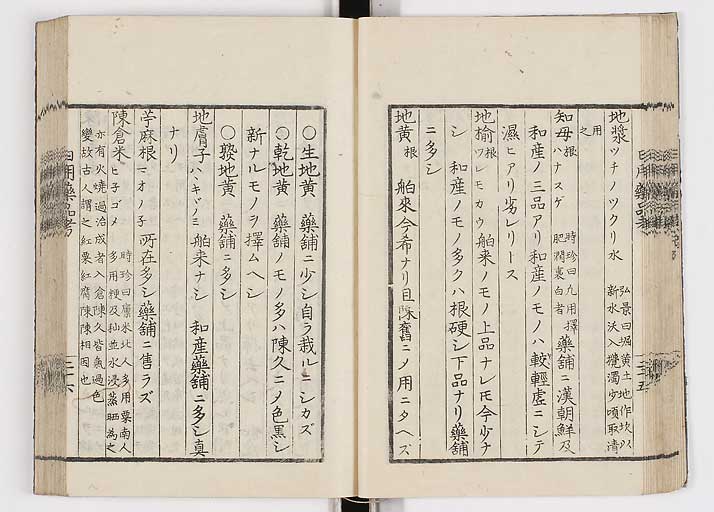 地漿 ツチノツクリ水 弘景曰堀黄土地作坎以
新水沃入攪濁少頃取清
用之
知母根 ハナスゲ 時珍曰凡用擇
肥潤裏白者 藥舗ニ漢朝鮮及
和産ノ三品アリ和産ノモノハ較輕虚ニシテ
濕ヒアリ劣レリトス
地榆根 ツレモカウ 舶来ノモノ上品ナレモ今少ナ
シ 和産ノモノ多クハ根硬シ下品ナリ藥舗
ニ多シ
地黄根 舶來今希ナリ且陳舊ニメ用ニタヘズ
○生地黄 藥舗ニ少シ自ラ栽ルニシカズ
○乾地黄 藥舗ノモノ多ハ陳久ニメ色黒シ
新ナルモノヲ擇ムヘシ
○熟地黄 藥舗ニ多シ
地膚子 ハヽキヾノミ 舶来ナシ 和産藥舗ニ多シ真
ナリ
苧麻根 マオ 子 所在多シ藥舗ニ售ラズ
陳倉米 ヒ子ゴメ 時珍曰廩米北人多用粟南人
多用粳及秈並水浸蒸晒為之
亦有火燒過治成者入倉陳久皆氣過色
變故古人謂之紅粟紅腐陳陳相因也
日用藥品考
二十六
二十五